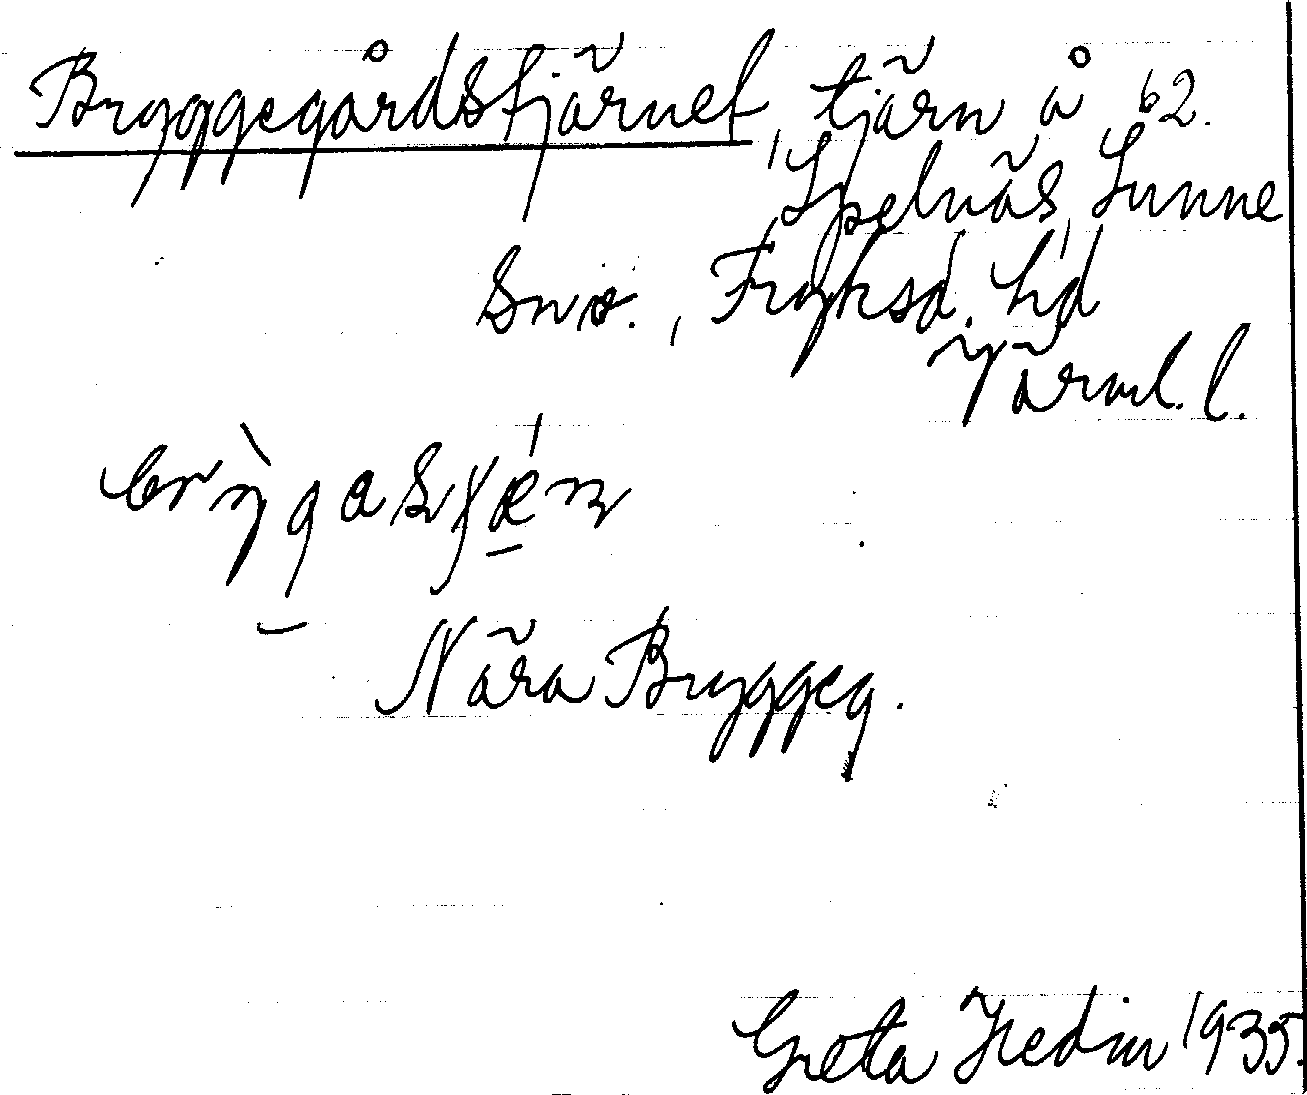 Bryggegårdstjärnet, tjärn å 62.
Spelnäs, Sunne
sns., Fryksd. hd
Värml. l.
Nära Bryggeg.
Greta Hedin 1935.